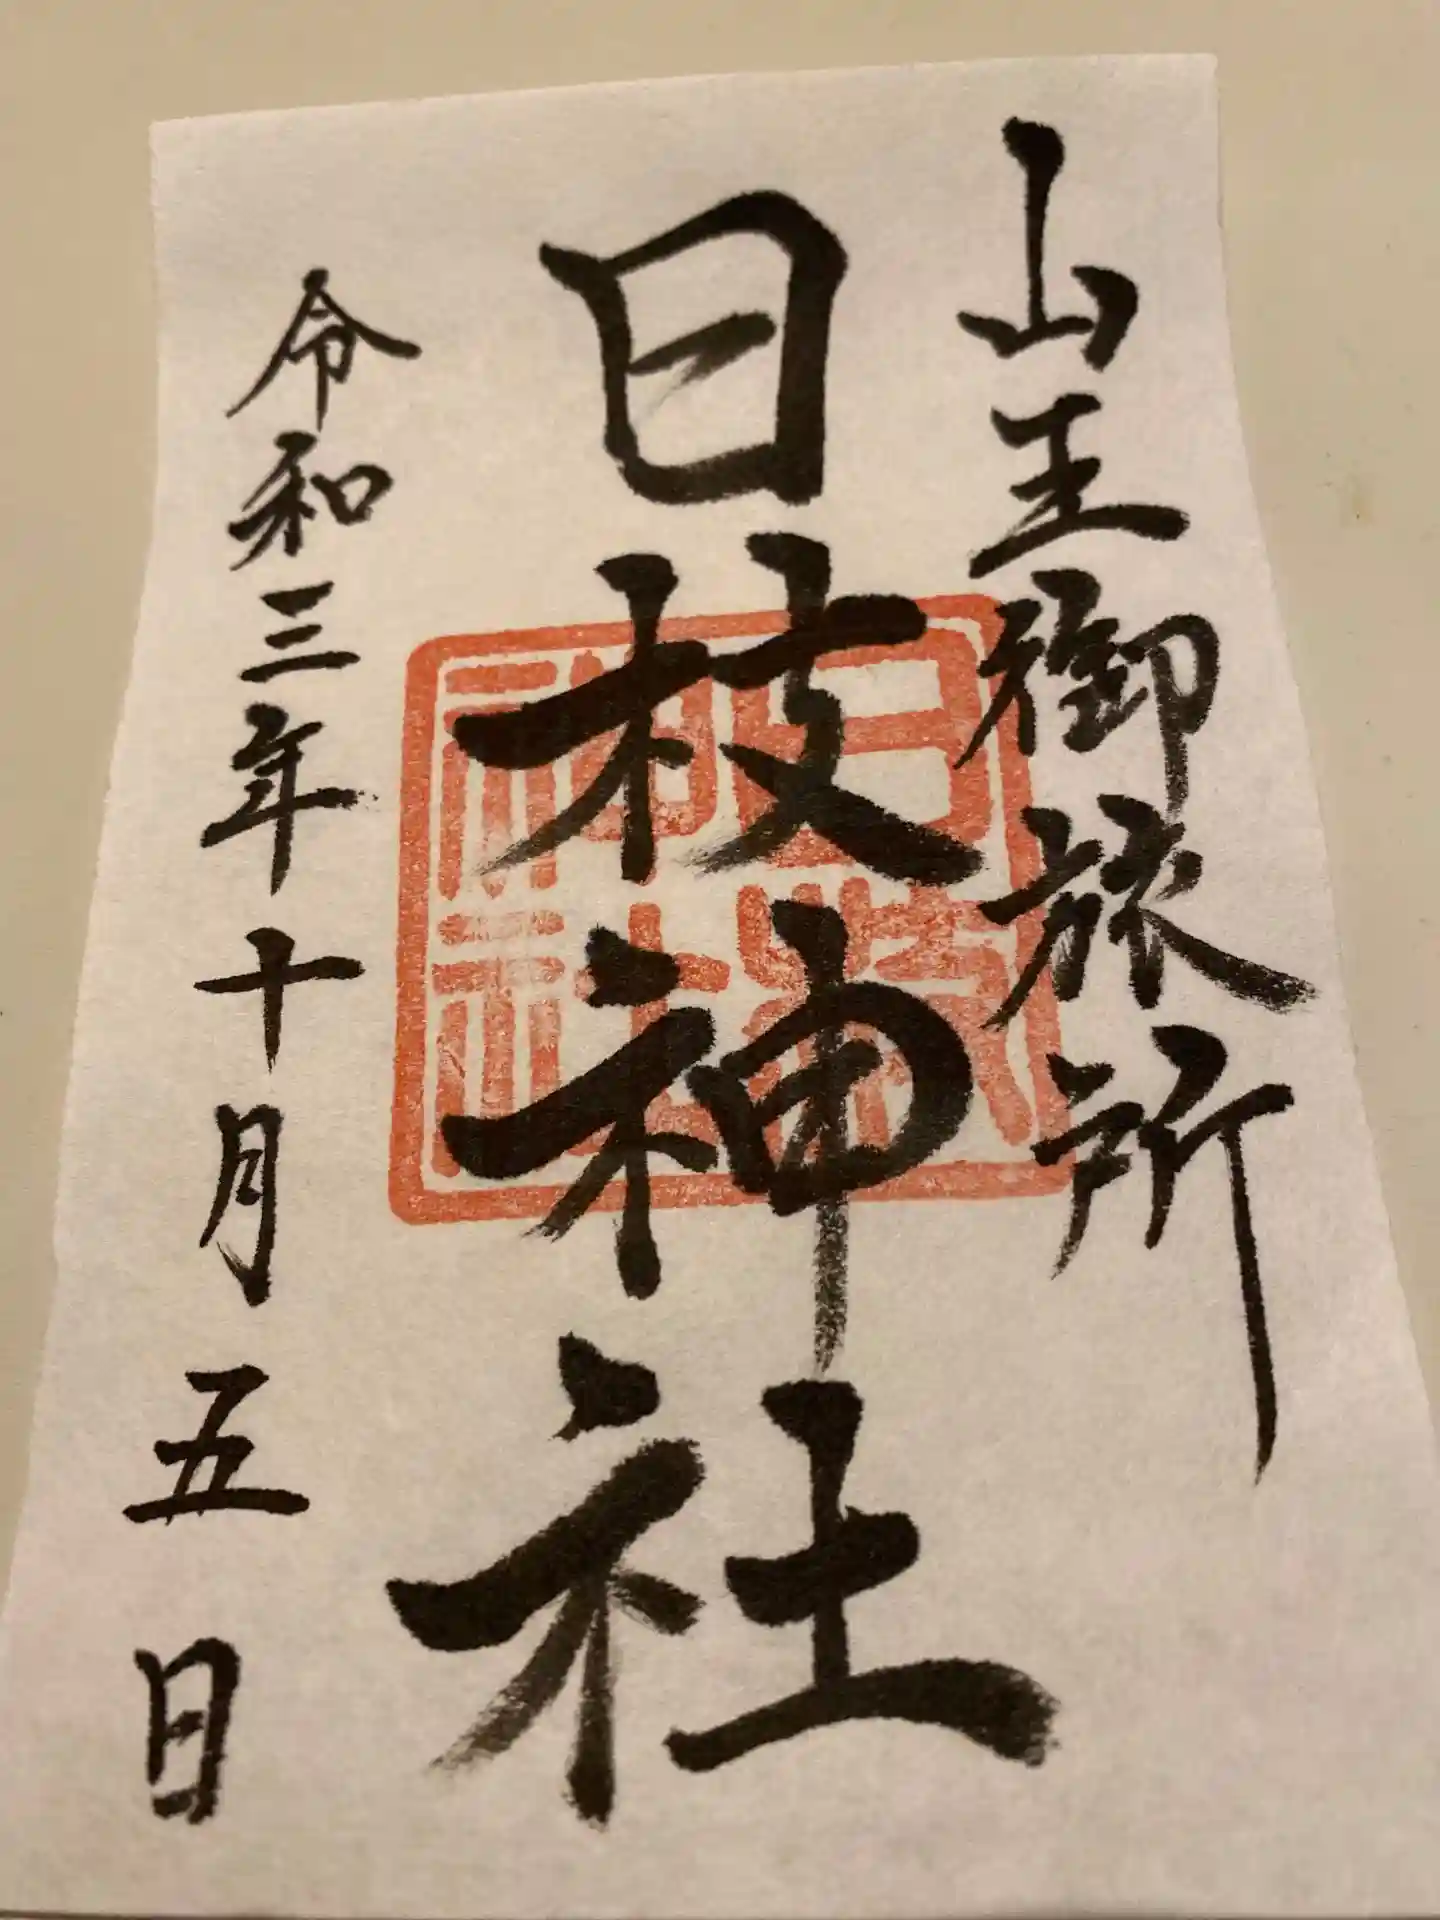 山王御旅所
日枝神社
令和三年十月五日
日枝
神社